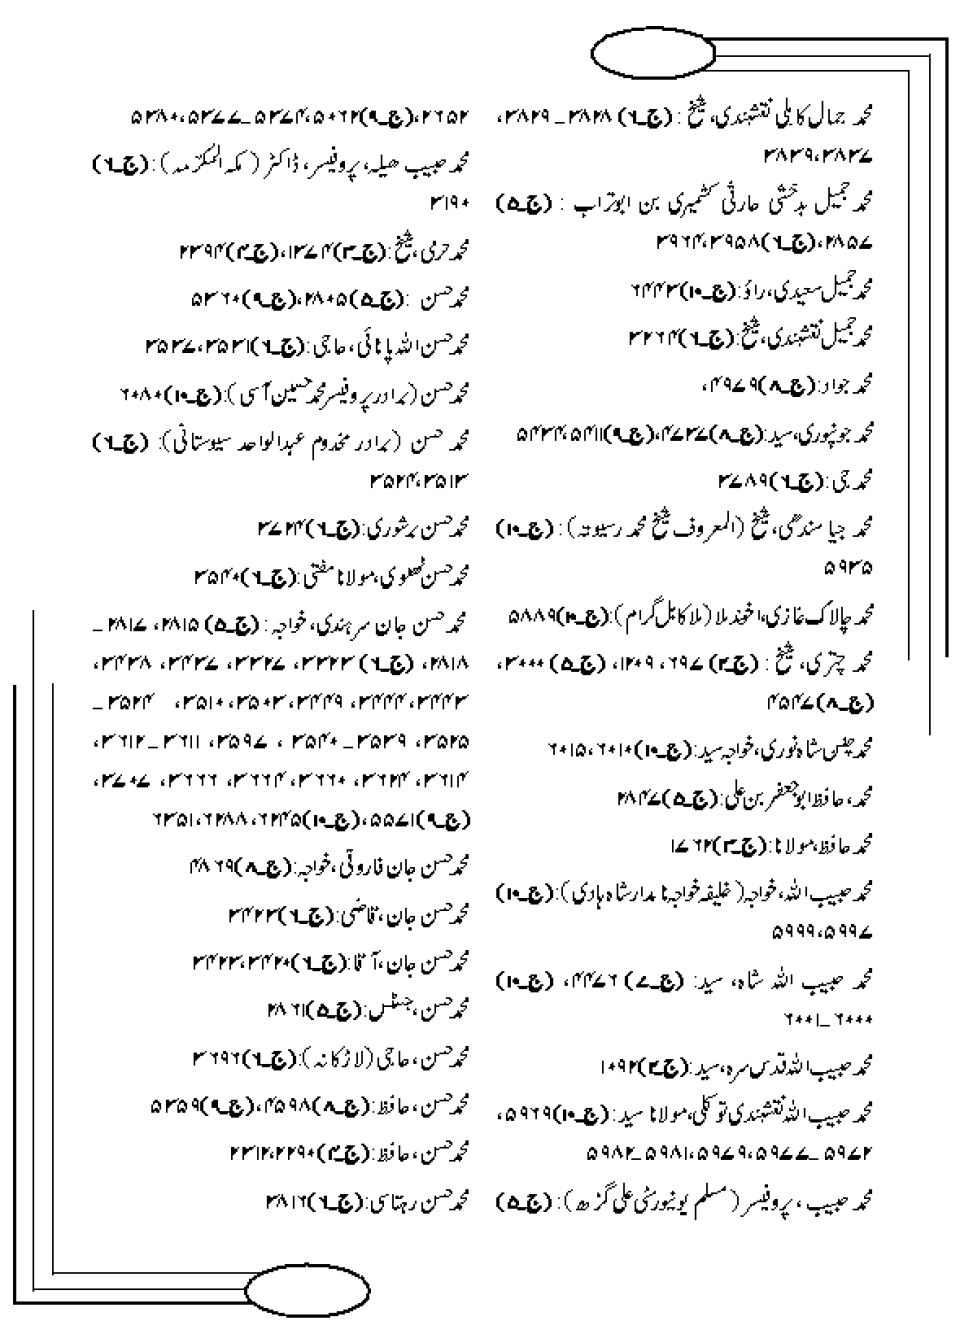 محمد جمال کابلی نقشبندی، شیخ : (ج_۶) ۳۸۲۸ _ ۳۸۲۹،
۳۸۳۷، ۳۸۳۹
محمد جمیل بدخشی حارثی کشمیری بن ابوتراب : (ج_۵)
۲۸۵۷، (ج_۶) ۳۹۵۸، ۳۹۶۴
محمد جمیل سعیدی، راؤ: (ج_۱۰) ۶۴۴۳
محمد جمیل نقشبندی، شیخ: (ج_۶) ۳۲۶۴
محمد جواد: (ج_۸) ۴۹۷۹،
محمد جونپوری، سید: (ج_۸) ۴۷۳۷، (ج_۹) ۵۴۱۱، ۵۴۳۴
محمد جی: (ج_۶) ۳۷۸۹
محمد جیا سندھی، شیخ (المعروف شیخ محمد رسیونہ) : (ج_۱۰)
۵۹۳۵
محمد چالاک غازی، اخوند ملا (ملا کابل گرام): (ج_۱۰) ۵۸۸۹
محمد چتری، شیخ : (ج_۲) ۶۹۷، ۱۲۰۹، (ج_۵) ۳۰۰۰،
(ج_۸) ۴۵۴۷
محمد چشن شاہ نوری، خواجہ سید: (ج_۱۰) ۶۰۱۰، ۶۰۱۵
محمد، حافظ ابو جعفر بن علی: (ج_۵) ۲۸۴۷
محمد حافظ، مولانا: (ج_۳) ۱۷۶۲
محمد حبیب اللہ، خواجہ (خلیفہ خواجہ نامدار شاہ ہادی): (ج_۱۰)
۵۹۹۷، ۵۹۹۹
محمد حبیب اللہ شاہ، سید: (ج_۷) ۴۴۷۶، (ج_۱۰)
۶۰۰۰ _ ۶۰۰۱
محمد حبیب اللہ قدس سرہ، سید: (ج_۲) ۱۰۹۲
محمد حبیب اللہ نقشبندی توکلی، مولانا سید: (ج_۱۰) ۵۹۶۹،
۵۹۷۲ _ ۵۹۷۷، ۵۹۷۹، ۵۹۸۱ _ ۵۹۸۲
محمد حبیب، پروفیسر (مسلم یونیورسٹی علی گڑھ): (ج_۵)
۲۶۵۲، (ج_۹) ۵۰۶۲، ۵۳۷۴ _ ۵۳۷۷، ۵۳۸۰
محمد حبیب ھیلہ، پروفیسر، ڈاکٹر (مکۃ المکرمہ): (ج_۶)
۳۱۹۰
محمد حرمی، شیخ: (ج_۳) ۱۳۷۴، (ج_۴) ۲۳۹۴
محمد حسن : (ج_۵) ۲۸۰۵، (ج_۹) ۵۳۶۰
محمد حسن اللہ پاٹائی، حاجی: (ج_۶) ۳۵۳۱، ۳۵۳۷
محمد حسن (برادر پروفیسر محمد حسین آسی): (ج_۱۰) ۶۰۸۰
محمد حسن (برادر مخدوم عبدالواحد سیوستانی): (ج_۶)
۳۵۱۳، ۳۵۲۴
محمد حسن برشوری: (ج_۶) ۳۷۲۴
محمد حسن ٹھلوی، مولانا مفتی: (ج_۶) ۳۵۴۰
محمد حسن جان سرہندی، خواجہ: (ج_۵) ۲۸۱۵، ۲۸۱۷ _
۲۸۱۸، (ج_۶) ۳۳۲۳، ۳۳۲۷، ۳۴۳۷، ۳۴۳۸،
۳۴۴۳، ۳۴۴۴، ۳۴۴۹، ۳۵۰۳، ۳۵۱۰، ۳۵۲۴ _
۳۵۲۵، ۳۵۳۹ _ ۳۵۴۰، ۳۵۹۷، ۳۶۱۱ _ ۳۶۱۲،
۳۶۱۴، ۳۶۲۴، ۳۶۶۰، ۳۶۶۴، ۳۶۶۶، ۳۷۰۷،
(ج_۹) ۵۵۷۱، (ج_۱۰) ۶۲۴۵، ۶۲۸۸، ۶۳۵۱
محمد حسن جان فاروقی، خواجہ: (ج_۸) ۴۸۶۹
محمد حسن جان، قاضی: (ج_۶) ۳۴۲۳
محمد حسن جان، آقا: (ج_۶) ۳۴۲۰، ۳۴۲۳
محمد حسن، جسٹس: (ج_۵) ۲۸۶۱
محمد حسن، حاجی (لاڑکانہ): (ج_۶) ۳۶۹۶
محمد حسن، حافظ: (ج_۸) ۴۵۹۸، (ج_۹) ۵۳۵۹
محمد حسن، حافظ: (ج_۴) ۲۲۹۰، ۲۳۱۲
محمد حسن رہتاسی: (ج_۶) ۳۸۱۶